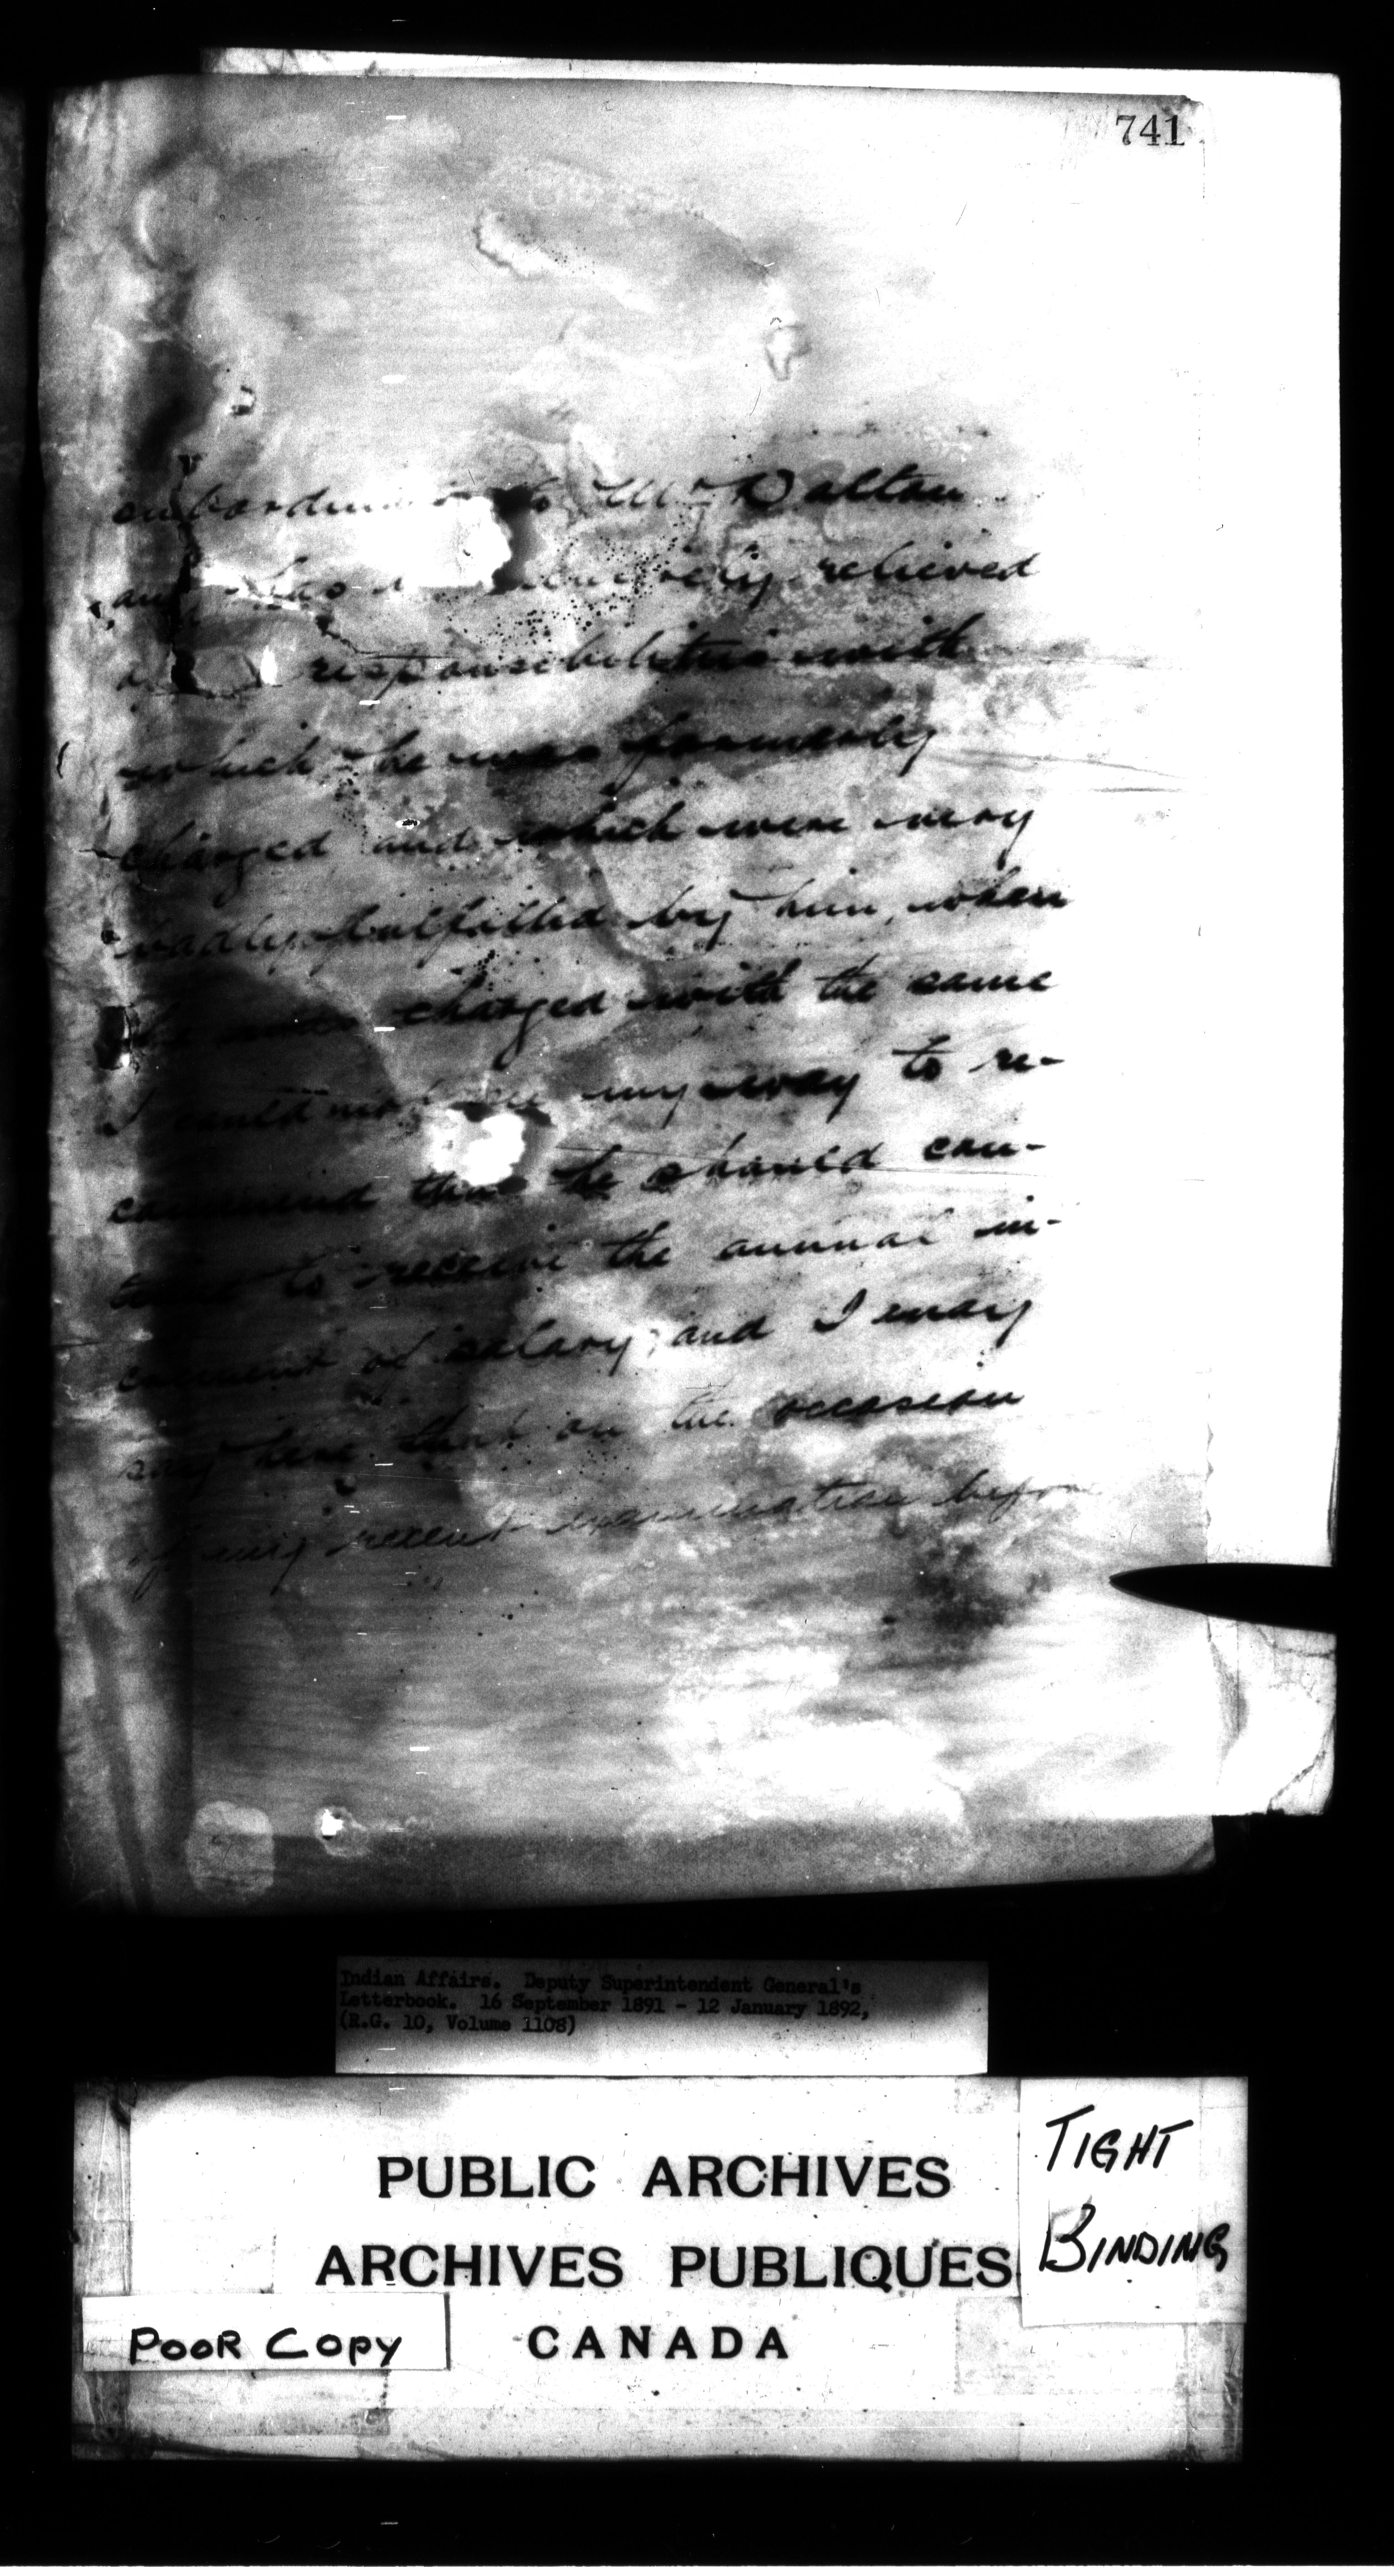 741
to Mr Dalton
relieved
responsibilities with
which he was formerly
charged and which were very
badly fulfilled by him, when
he was charged with the same
I could not see my way to re-
commend that he should con-
tinue to receive the annual in-
crement of salary, and I may
say here that on the occasion
of my recent examination before
Indian Affairs. Deputy Superintendent General's
Letterbook. 16 September 1891 - 12 January 1892,
(R.G. 10, Volume 1108)
PUBLIC ARCHIVES
ARCHIVES PUBLIQUES
CANADA
TIGHT
BINDING
POOR COPY